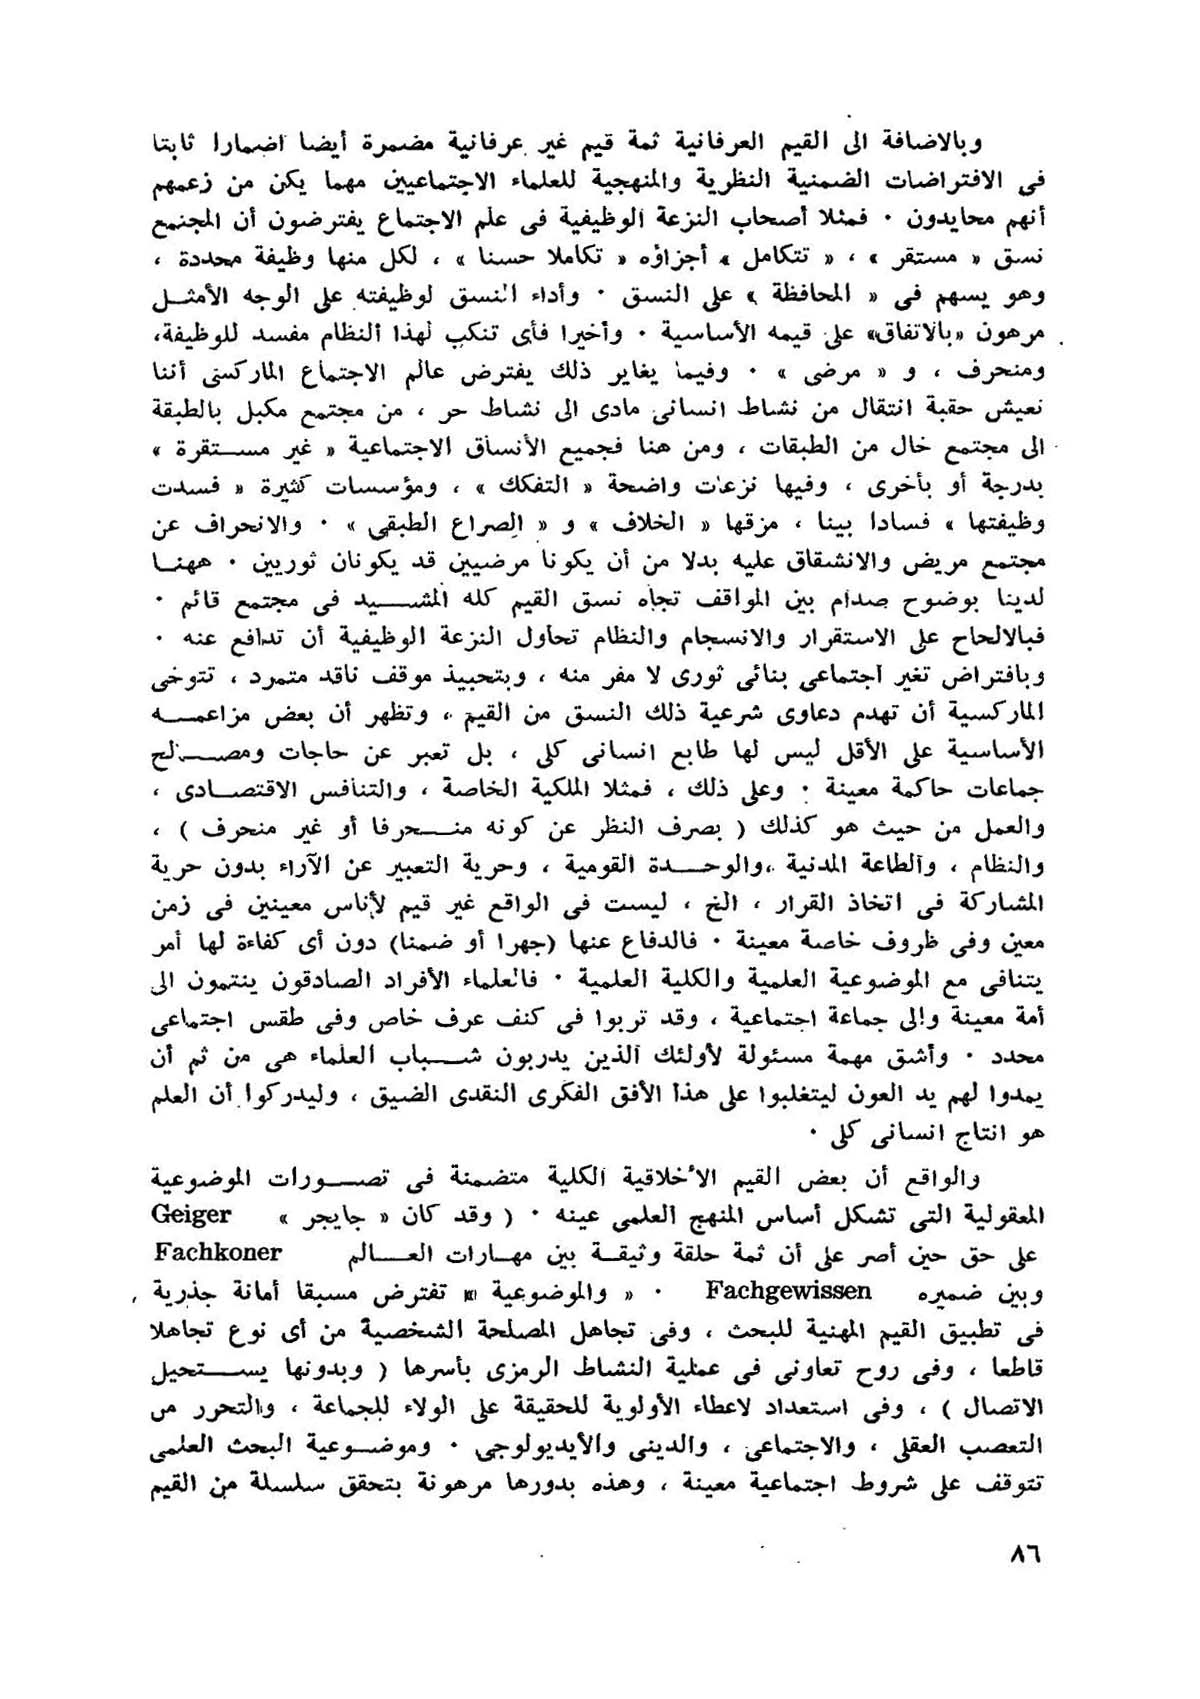 وبالاضافة الى القيم العرفانية ثمة قيم غير عرفانية مضمرة أيضا اضمارا ثابتا
فى الافتراضات الضمنية النظرية والمنهجية للعلماء الاجتماعيين مهما يكن من زعمهم
أنهم محايدون ٠ فمثلا أصحاب النزعة الوظيفية فى علم الاجتماع يفترضون أن المجتمع
نسق « مستقر » ، « تتكامل » أجزاؤه « تكاملا حسنا » ، لكل منها وظيفة محددة ،
وهو يسهم فى « المحافظة » على النسق ٠ وأداء النسق لوظيفته على الوجه الأمثـل
مرهون «بالاتفاق» على قيمه الأساسية ٠ وأخيرا فأى تنكب لهذا النظام مفسد للوظيفة،
ومنحرف ، و « مرضى » ٠ وفيما يغاير ذلك يفترض عالم الاجتماع الماركسى أننا
نعيش حقبة انتقال من نشاط انسانى مادى الى نشاط حر ، من مجتمع مكبل بالطبقة
الى مجتمع خال من الطبقات ، ومن هنا فجميع الأنساق الاجتماعية « غير مســتقرة »
بدرجة أو بأخرى ، وفيها نزعات واضحة « التفكك » ، ومؤسسات كثيرة « فسدت
وظيفتها » فسادا بينا ، مزقها « الخلاف » و « الصراع الطبقى » ٠ والانحراف عن
مجتمع مريض والانشقاق عليه بدلا من أن يكونا مرضيين قد يكونان ثوريين ٠ ههنـا
لدينا بوضوح صدام بين المواقف تجاه نسق القيم كله المشـــيد فى مجتمع قائم ٠
فبالالحاح على الاستقرار والانسجام والنظام تحاول النزعة الوظيفية أن تدافع عنه ٠
وبافتراض تغير اجتماعى بنائى ثورى لا مفر منه ، وبتحبيذ موقف ناقد متمرد ، تتوخى
الماركسية أن تهدم دعاوى شرعية ذلك النسق من القيم ، وتظهر أن بعض مزاعمــه
الأساسية على الأقل ليس لها طابع انسانى كلى ، بل تعبر عن حاجات ومصــالح
جماعات حاكمة معينة ٠ وعلى ذلك ، فمثلا الملكية الخاصة ، والتنافس الاقتصـادى ،
والعمل من حيث هو كذلك ( بصرف النظر عن كونه منــحرفا أو غير منحرف ) ،
والنظام ، والطاعة المدنية ، والوحــدة القومية ، وحرية التعبير عن الآراء بدون حرية
المشاركة فى اتخاذ القرار ، الخ ، ليست فى الواقع غير قيم لأناس معينين فى زمن
معين وفى ظروف خاصة معينة ٠ فالدفاع عنها (جهرا أو ضمنا) دون أى كفاءة لها أمر
يتنافى مع الموضوعية العلمية والكلية العلمية ٠ فالعلماء الأفراد الصادقون ينتمون الى
أمة معينة وإلى جماعة اجتماعية ، وقد تربوا فى كنف عرف خاص وفى طقس اجتماعى
محدد ٠ وأشق مهمة مسئولة لأولئك الذين يدربون شــباب العلماء هى من ثم أن
يمدوا لهم يد العون ليتغلبوا على هذا الأفق الفكرى النقدى الضيق ، وليدركوا أن العلم
هو انتاج انسانى كلى ٠
والواقع أن بعض القيم الأخلاقية الكلية متضمنة فى تصــورات الموضوعية
المعقولية التى تشكل أساس المنهج العلمى عينه ٠ ( وقد كان « جايجر » Geiger
على حق حين أصر على أن ثمة حلقة وثيقـة بين مهـارات العــالم Fachkoner
وبين ضميره Fachgewissen ٠ « والموضوعية » تفترض مسبقا أمانة جذرية ،
فى تطبيق القيم المهنية للبحث ، وفى تجاهل المصلحة الشخصية من أى نوع تجاهلا
قاطعا ، وفى روح تعاونى فى عملية النشاط الرمزى بأسرها ( وبدونها يســتحيل
الاتصال ) ، وفى استعداد لاعطاء الأولوية للحقيقة على الولاء للجماعة ، والتحرر من
التعصب العقلى ، والاجتماعى ، والدينى والأيديولوجى ٠ وموضـوعية البحث العلمى
تتوقف على شروط اجتماعية معينة ، وهذه بدورها مرهونة بتحقق سلسلة من القيم
٨٦